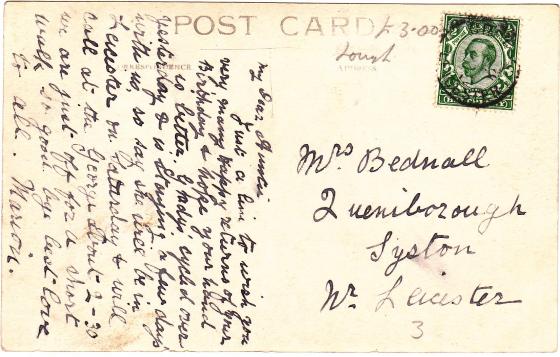 POST CARD
£3.00
CORRESPONDENCE.
ADDRESS
My Dear Auntie
Just a line to wish you
very many happy returns of your
Birthday & hope your hand
is better. Gladys cycled over
yesterday & is staying a few days
with us, so say she will be in
Leicester on Saturday & will
call at the George about 2-30
we are just off for a short
walk so good bye best love
to all. Marion.
Mrs Bednall
Queniborough
Syston
Nr Leicester
3